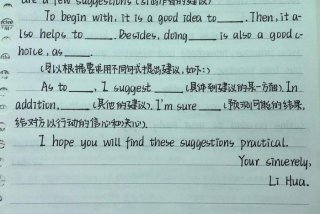 are a few suggestions (引出作者的建议)
To begin with, it is a good idea to____. Then, it a-
lso helps to____. Besides, doing____is also a good c-
hoice, as____.
(可以根据需采用不同句式提出建议, 如下:)
As to____, I suggest____(具体到建议的某一方面). In
addition,____(其他的建议). I'm sure____(预测可能的结果,
给对方以行动的信心和决心).
I hope you will find these suggestions practical.
Your sincerely,
Li Hua.